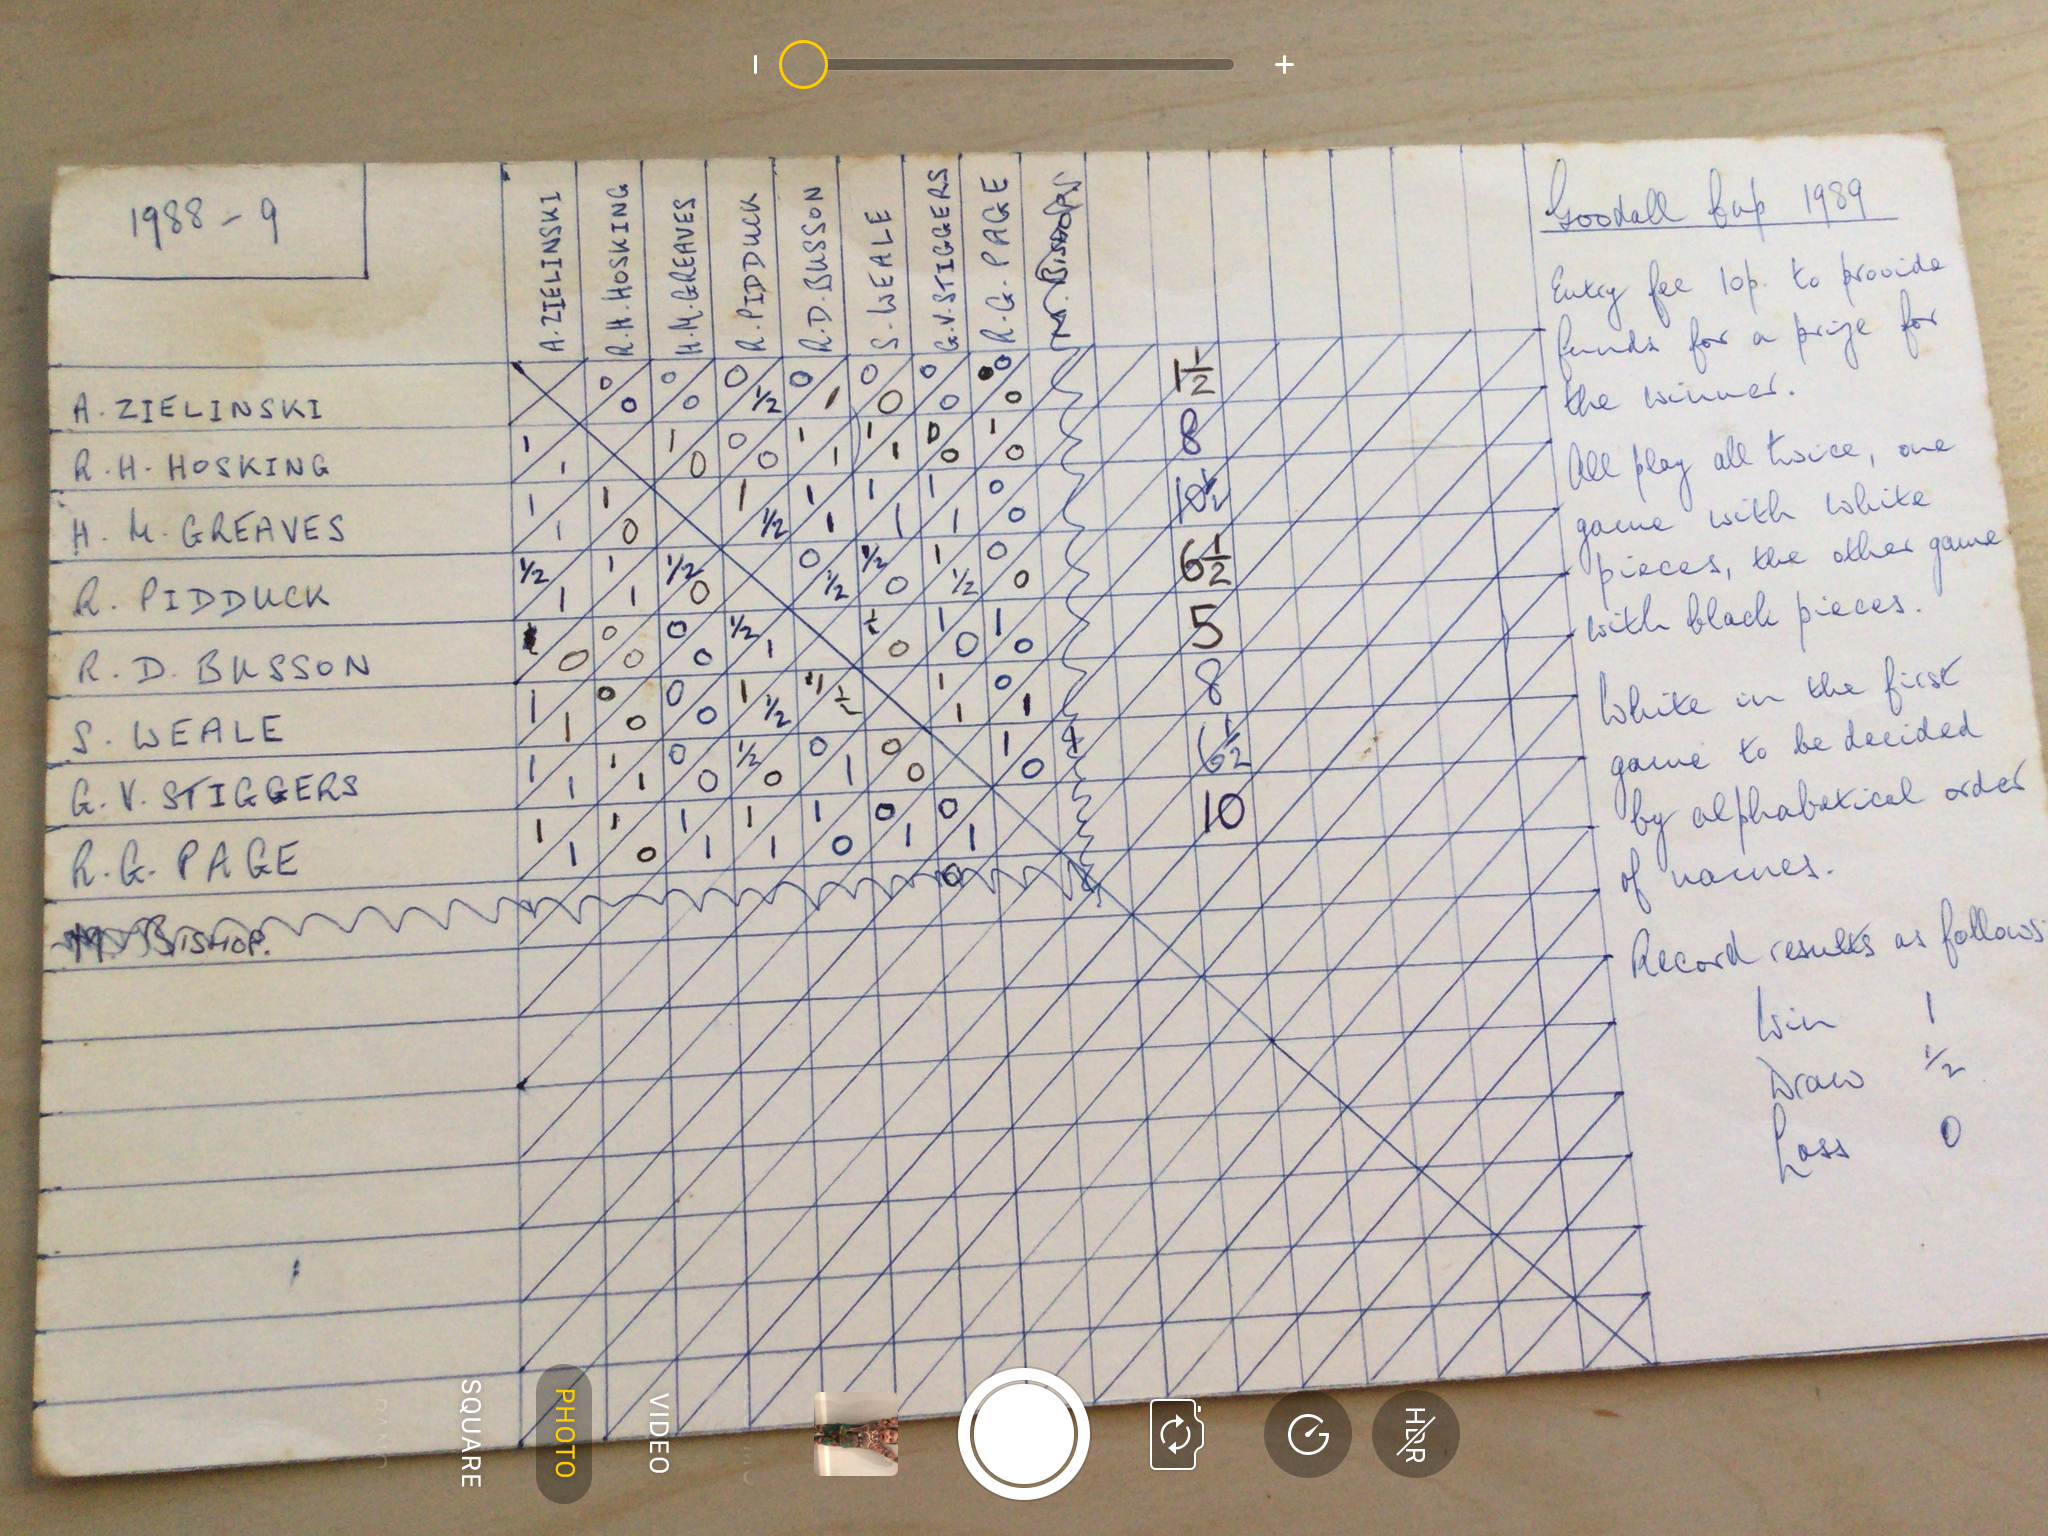 1988-9
A. ZIELINSKI
R.H. HOSKING
H.M. GREAVES
R. PIDDUCK
R.D. BUSSON
S. WEALE
G.V. STIGGERS
R.G. PAGE
M. BISHOP
A. ZIELINSKI 0 0 0 0 0 0 1/2 0 1 0 0 0 0 0 0 1 1/2
R.H. HOSKING 1 1 1 0 0 0 1 1 1 1 0 0 1 0 8
H. M. GREAVES 1 1 1 0 1 1/2 1 1 1 1 1 1 0 0 10 1/2
R. PIDDUCK 1/2 1 1 1 1/2 0 0 1/2 1/2 0 1 1/2 0 0 6 1/2
R. D. BUSSON 0 0 0 0 0 1/2 1 1/2 0 1 0 1 0 5
S. WEALE 1 1 0 0 0 0 1 1/2 1 1/2 1 1 0 1 8
G. V. STIGGERS 1 1 1 1 0 0 1/2 0 0 1 0 0 1 0 6 1/2
R. G. PAGE 1 1 1 0 1 1 1 1 1 0 0 1 0 1 10
0
M. BISHOP.
Goodall Cup 1989
Entry fee 10p. to provide
funds for a prize for
the winner.
All play all twice, one
game with white
pieces, the other game
with black pieces.
White in the first
game to be decided
by alphabetical order
of names.
Record results as follows:
Win 1
Draw 1/2
Loss 0
SQUARE
PHOTO
VIDEO
HDR